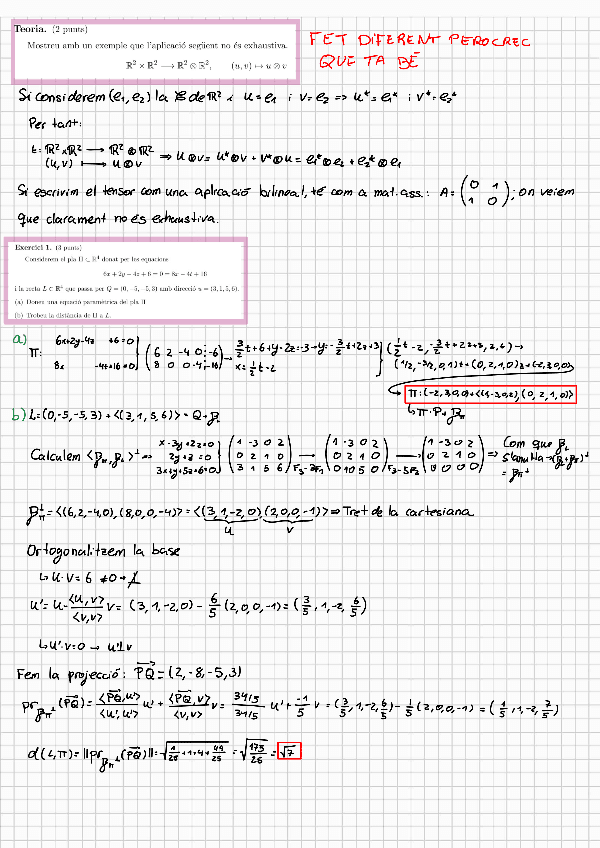 Teoria. (2 punts)
Mostreu amb un exemple que l'aplicació següent no és exhaustiva.
ℝ² × ℝ² ⟶ ℝ² ⊗ ℝ², (u, v) ↦ u ⊗ v
FET DIFERENT PERO CREC
QUE TA BÉ
Si considerem (e₁, e₂) la B de ℝ² i u = e₁ i v = e₂ => u* = e₁* i v* = e₂*
Per tant:
t: ℝ² × ℝ² → ℝ² ⊗ ℝ²
(u, v) ⟼ u ⊗ v => u ⊗ v = u* ⊗ v + v* ⊗ u = e₁* ⊗ e₂ + e₂* ⊗ e₁
Si escrivim el tensor com una aplicació bilineal, té com a mat. ass.: A = (0 1; 1 0); on veiem
que clarament no és exhaustiva.
Exercici 1. (3 punts)
Considerem el pla Π ⊂ ℝ⁴ donat per les equacions
6x + 2y − 4z + 6 = 0 = 8x − 4t + 16
i la recta L ∈ ℝ⁴ que passa per Q = (0, −5, −5, 3) amb direcció u = (3, 1, 5, 6).
(a) Doneu una equació paramètrica del pla Π
(b) Trobeu la distància de Π a L.
a) Π: 6x+2y-4z +6=0
8x -4t+16=0 } (6 2 -4 0 : -6; 8 0 0 -4 : -16) → 3/2 t+6+y-2z=-3 → y=-3/2 t+2z+3
x=1/2 t-2 } (1/2 t-2, -3/2 t+2z+3, z, t) →
(1/2, -3/2, 0, 1)t + (0, 2, 1, 0)z + (-2, 3, 0, 0)
Π: (-2, 3, 0, 0) + <(1, -3, 0, 2), (0, 2, 1, 0)>
↳ Π: P +
b) L = (0, -5, -5, 3) + <(3, 1, 5, 6)> = Q +
Calculem x-3y+2z=0
2y+z=0
3x+y+5z+6=0 } (1 -3 0 2; 0 2 1 0; 3 1 5 6) F₃-3F₁ → (1 -3 0 2; 0 2 1 0; 0 10 5 0) F₃-5F₂ → (1 -3 0 2; 0 2 1 0; 0 0 0 0) => Com que
= <(6, 2, -4, 0), (8, 0, 0, -4)> = <(3, 1, -2, 0), (2, 0, 0, -1)> => Tret de la cartesiana
u v
Ortogonalitzem la base
↳ u·v = 6 ≠ 0 →
u' = u - <u, v>/<v, v> v = (3, 1, -2, 0) - 6/5 (2, 0, 0, -1) = (3/5, 1, -2, 6/5)
↳ u'·v = 0 → u' ⊥ v
Fem la projecció: PQ = (2, -8, -5, 3)
(PQ) = <PQ, u'>/<u', u'> u' + <PQ, v>/<v, v> v = 34/5 / 34/5 u' + -1/5 v = (3/5, 1, -2, 6/5) - 1/5 (2, 0, 0, -1) = (1/5, 1, -2, 7/5)
d(L, Π) = ||pr (PQ)|| = √(1/25 + 1 + 4 + 49/25) = √(175/25) = √7